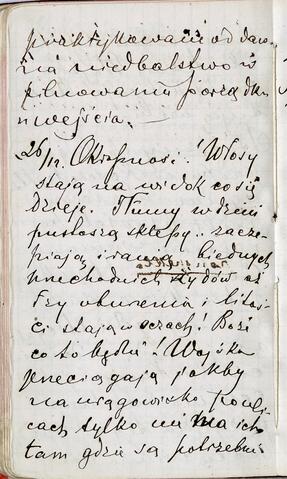 praktykowani od daw-
na niedbalstwo w
pilnowaniu porządku
u wejścia.
26/12. Okropności! Włosy
stają na widok co się
dzieje. Tłumy w dzień
pustoszą sklepy.. zacze-
piają i ranią biednych
przechodnich Żydów aż
łzy oburzenia i litoś-
ci stają w oczach! Boże
co to będzie! Wojska
przeciągają jakby
na urągowisko po uli-
cach tylko nie ma ich
tam gdzie są potrzebni